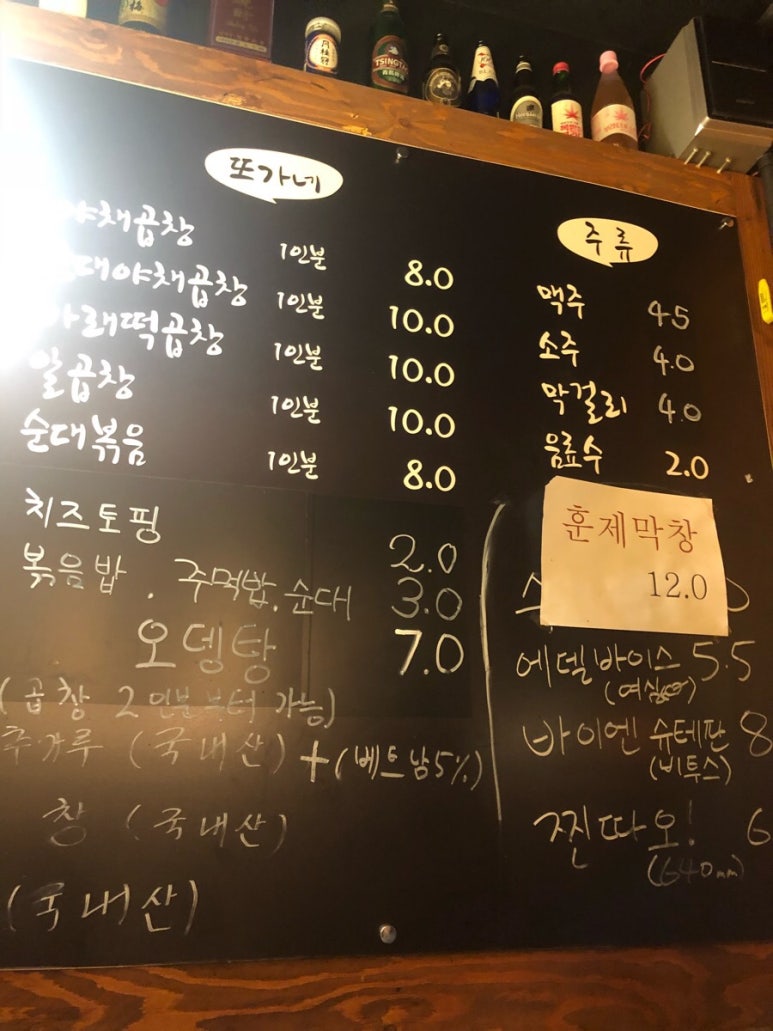 TSINGTAO
또가네
야채곱창 1인분 8.0
대야채곱창 1인분 10.0
가래떡곱창 1인분 10.0
알곱창 1인분 10.0
순대볶음 1인분 8.0
치즈토핑 2.0
볶음밥 . 주먹밥.순대 3.0
오뎅탕 7.0
(곱창 2인분부터 가능)
추가루 (국내산) + (베트남5%)
창 (국내산)
(국내산)
주류
맥주 45
소주 4.0
막걸리 4.0
음료수 2.0
훈제막창
12.0
에델바이스 5.5
바이엔 슈테판 8
(비투스)
찐따오! 6
(640mm)